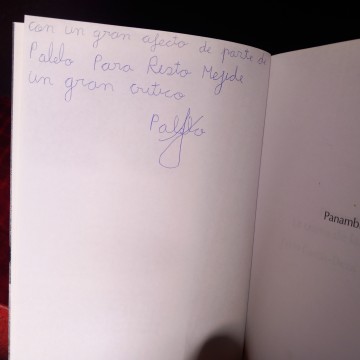 con un gran afecto de parte de
Pablo Para Risto Mejide
un gran critico
Pablo
Panamb